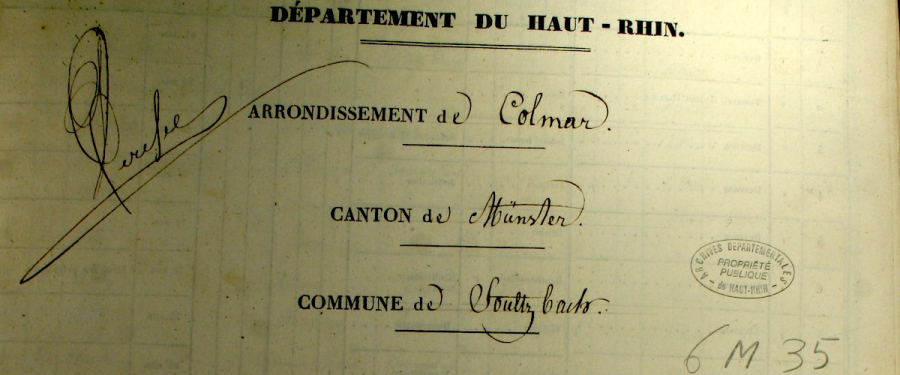 DÉPARTEMENT DU HAUT-RHIN.
ARRONDISSEMENT de Colmar.
CANTON de Münster.
COMMUNE de Soultzbach.
ARCHIVES DÉPARTEMENTALES
PROPRIÉTÉ
PUBLIQUE
du HAUT-RHIN
6 M 35